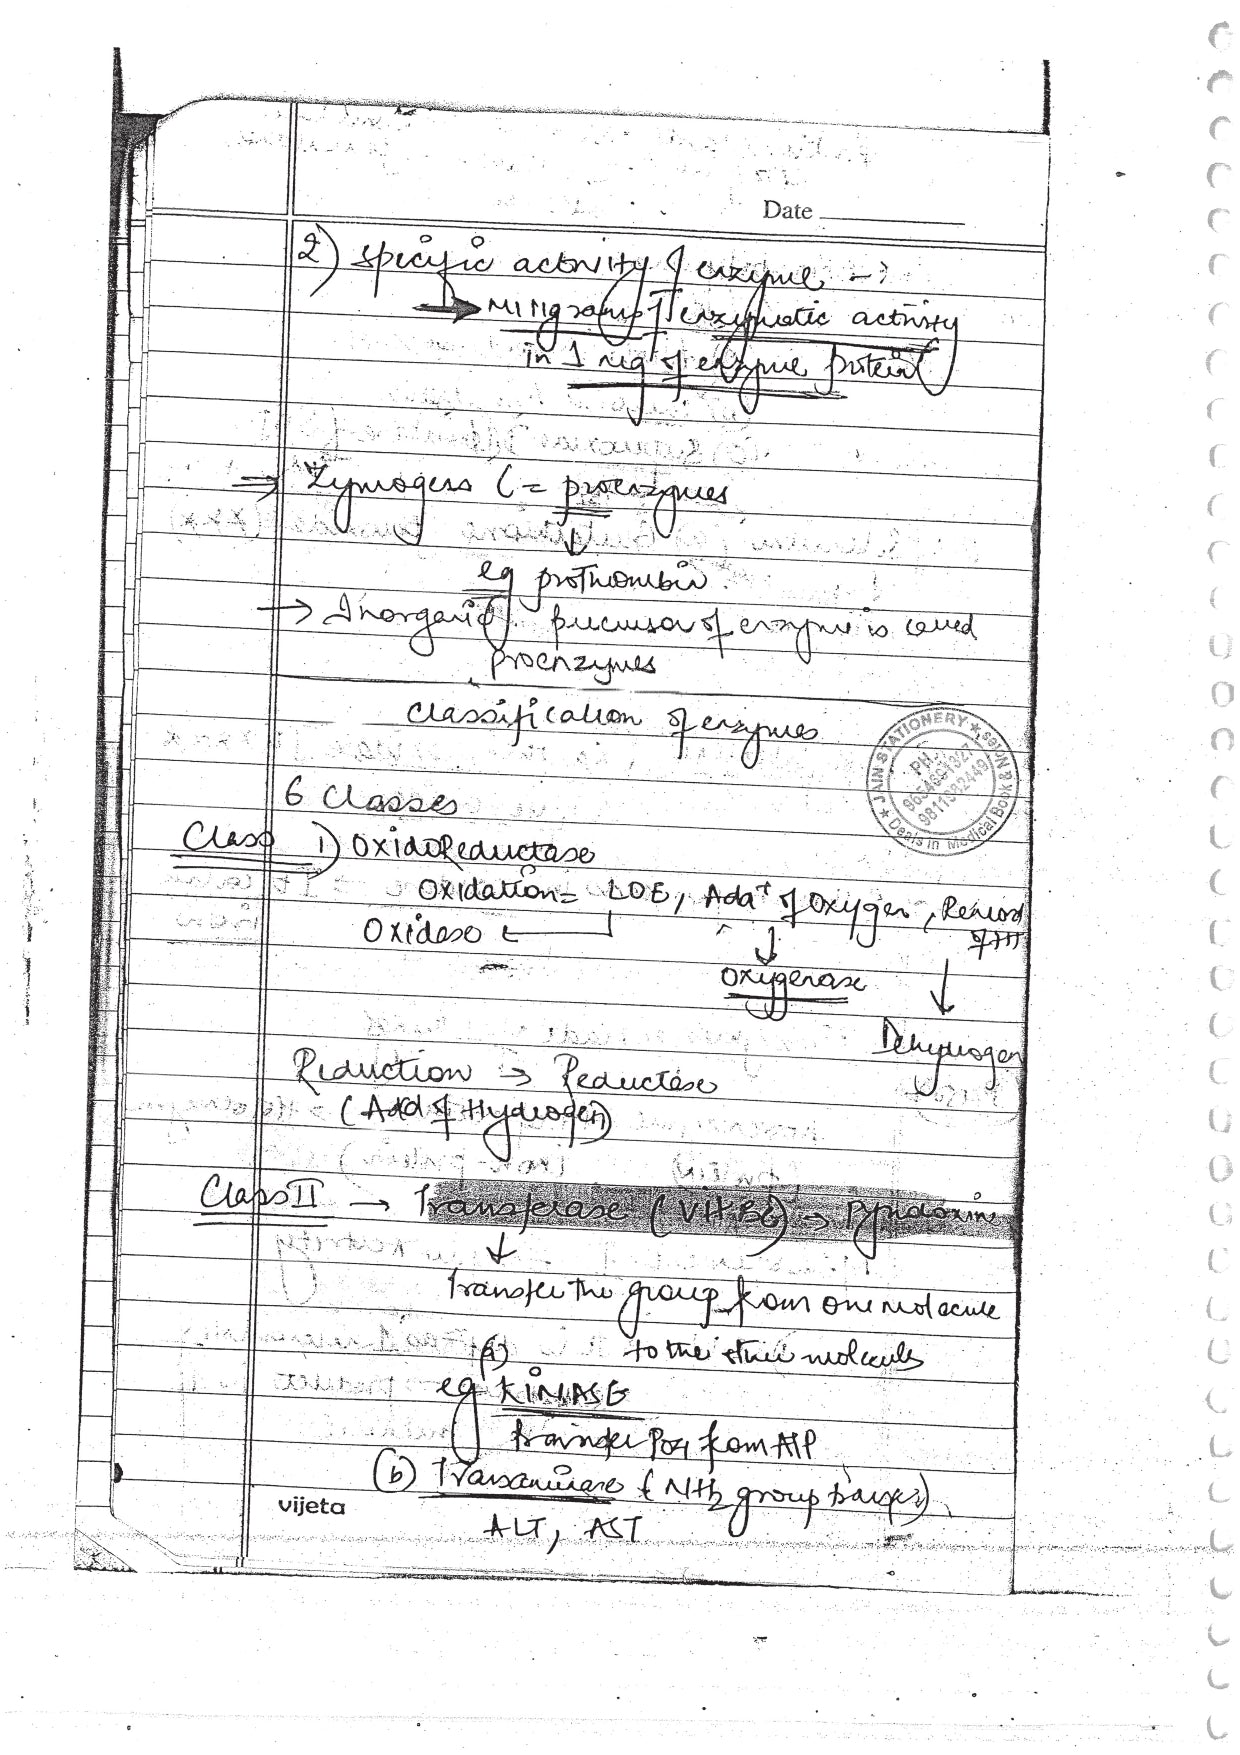 Date
2) specific activity of enzyme →
→ Milligram of enzymatic activity
in 1 mg of enzyme protein
⇒ Zymogens (= proenzymes
↓
eg prothrombin
→ Inorganic precursor of enzyme is called
proenzymes
Classification of enzymes
JAIN STATIONERY
PH.
Deals in Medical Book & Notes
6 Classes
Class 1) OxidoReductase
Oxidation = LOE, Addⁿ of Oxygen, Removal of H
Oxidase ←
↓
Oxygenase
↓
Dehydrogen
Reduction → Reductase
(Add of Hydrogen)
Class II → Transferase (Vit B6) → Pyridoxine
↓
Transfer the group from one molecule
to the other molecules
(a)
eg KINASE
transfer PO4 from ATP
(b) Transaminase (NH2 group transfer)
vijeta
ALT, AST